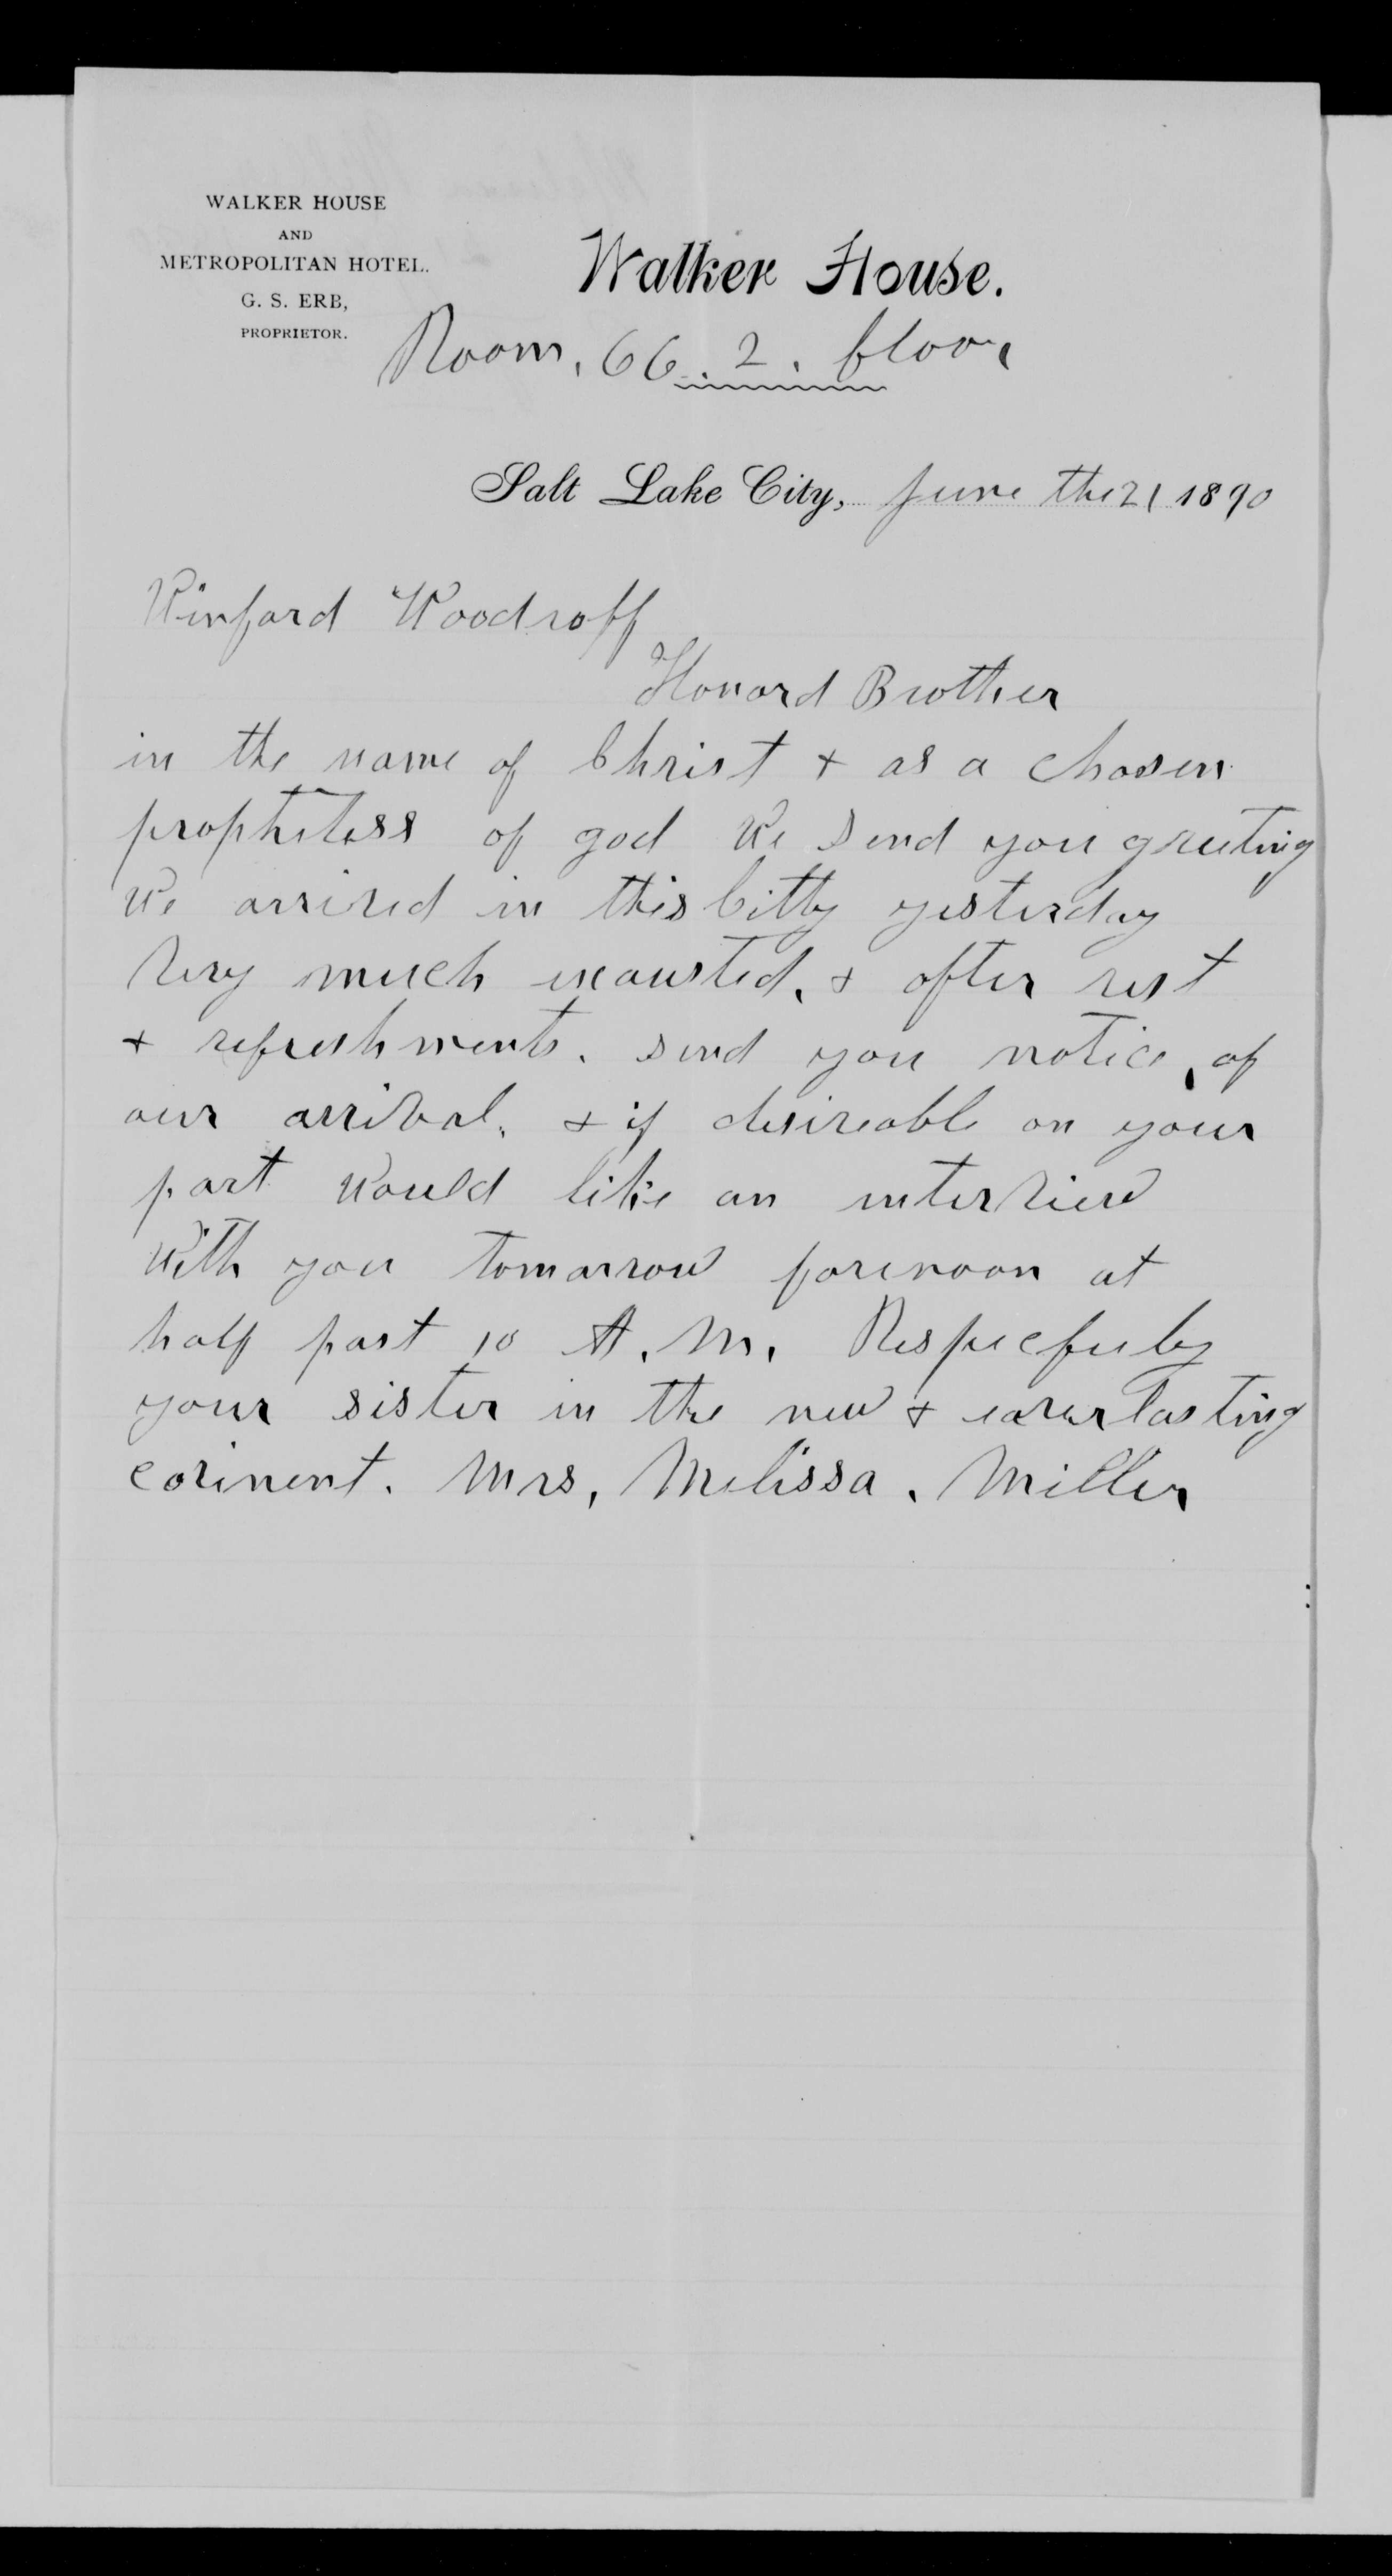 WALKER HOUSE
AND
METROPOLITAN HOTEL.
G. S. ERB,
PROPRIETOR.
Walker House.
Room, 66. 2. floor
Salt Lake City, June the 21 1890
Winford Woodroff
Honord Brother
in the name of Christ + as a chosen
prophetess of god We send you greeting
We arrived in this Citty yesterday
Very much exausted, + after rest
+ refreshments. send you notice, of
our arrival, + if desireable on your
part Would like an interview
With you tomarrow forenoon at
half past 10 A. M. Respecfuly
your sister in the new + everlasting
covinent. Mrs, Melissa. Miller